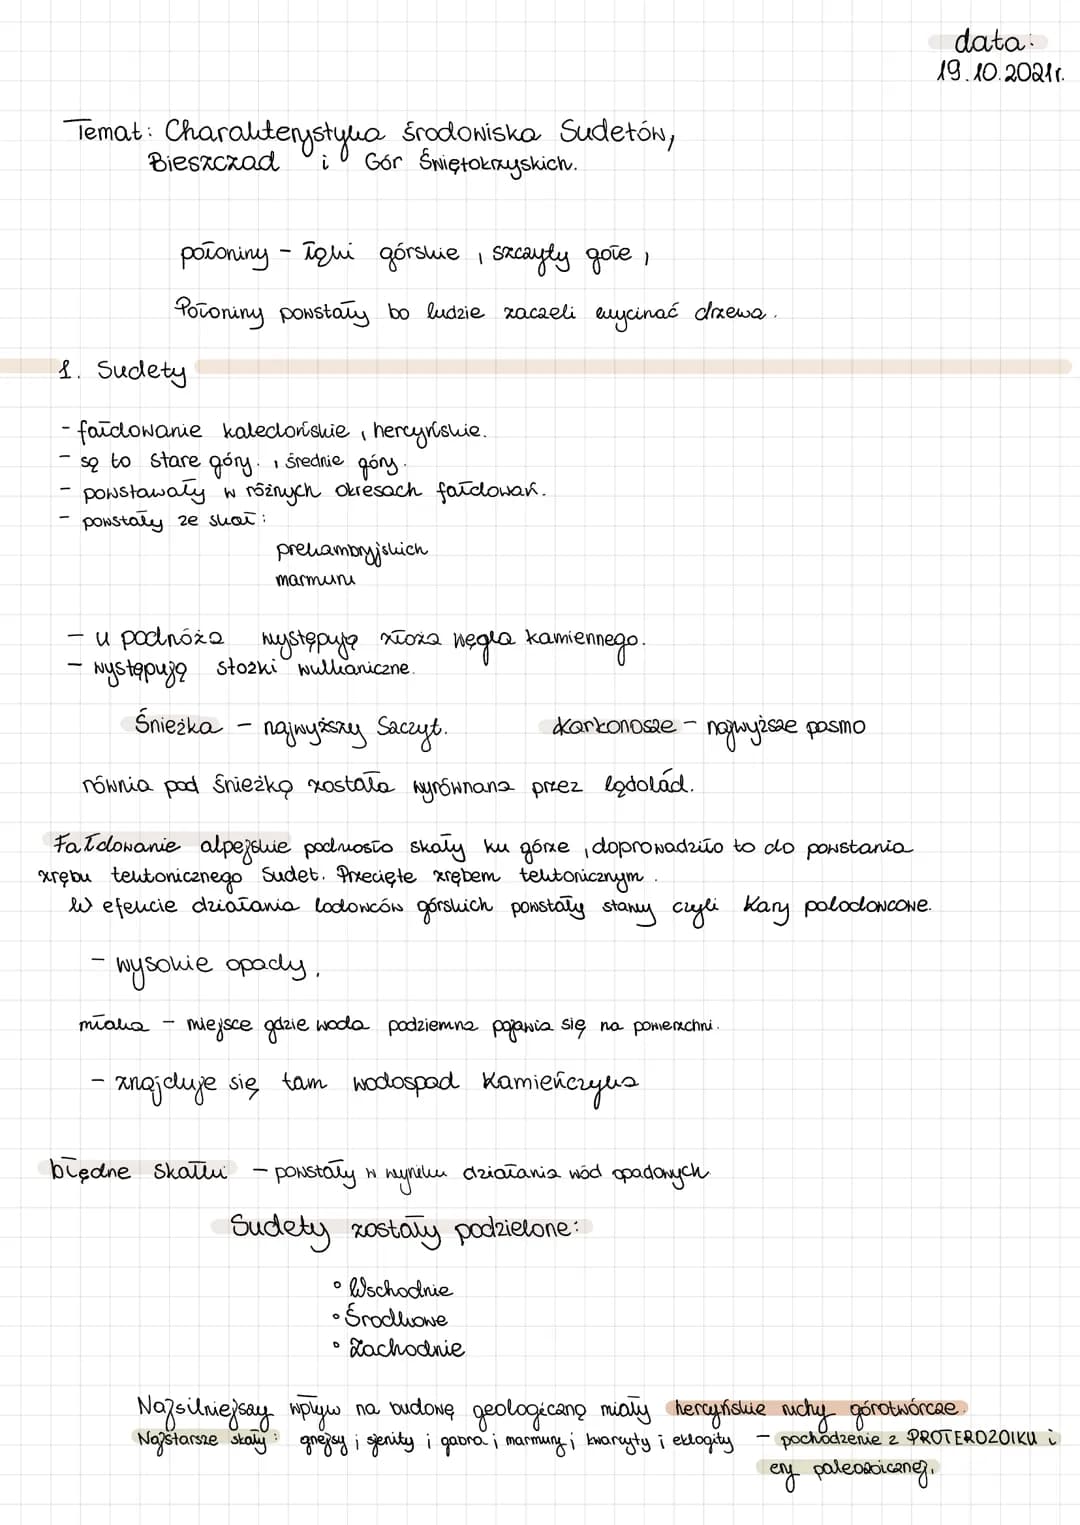 data:
19.10.2021r.
Temat: Charakterystyka środowiska Sudetów,
Bieszczad i Gór Świętokrzyskich.
połoniny - łąki górskie, szczyty gołe,
Połoniny powstały bo ludzie zaczeli wycinać drzewa.
1. Sudety
- fałdowanie kaledońskie, hercyńskie.
- są to stare góry., średnie góry.
- powstawały w różnych okresach fałdowań.
- powstały ze skał:
prekambryjskich
marmuru
- u podnóża występują złoża węgla kamiennego.
- występują stożki wulkaniczne.
Śnieżka - najwyższy Szczyt. Karkonosze - najwyższe pasmo
równia pod śnieżką została wyrównana przez lądolád.
Fałdowanie alpejskie podniosło skały ku górze, doprowadziło to do powstania
zrębu tektonicznego Sudet. Przecięte zrębem tektonicznym.
W efekcie działania lodowców górskich powstały stawy czyli Kary polodowcowe.
- wysokie opady,
młaka - miejsce gdzie woda podziemna pojawia się na powierzchni.
- znajduje się tam wodospad Kamieńczyka
błędne Skałki - powstały w wyniku działania wód opadowych
Sudety zostały podzielone:
• Wschodnie
• Środkowe
• Zachodnie
Najsilniejszy wpływ na budowę geologiczną miały hercyńskie ruchy górotwórcze.
Najstarsze skały: gnejsy i sjenity i gabra i marmury i kwarcyty i eklogity - pochodzenie z PROTEROZOIKU i
ery paleozoicznej.